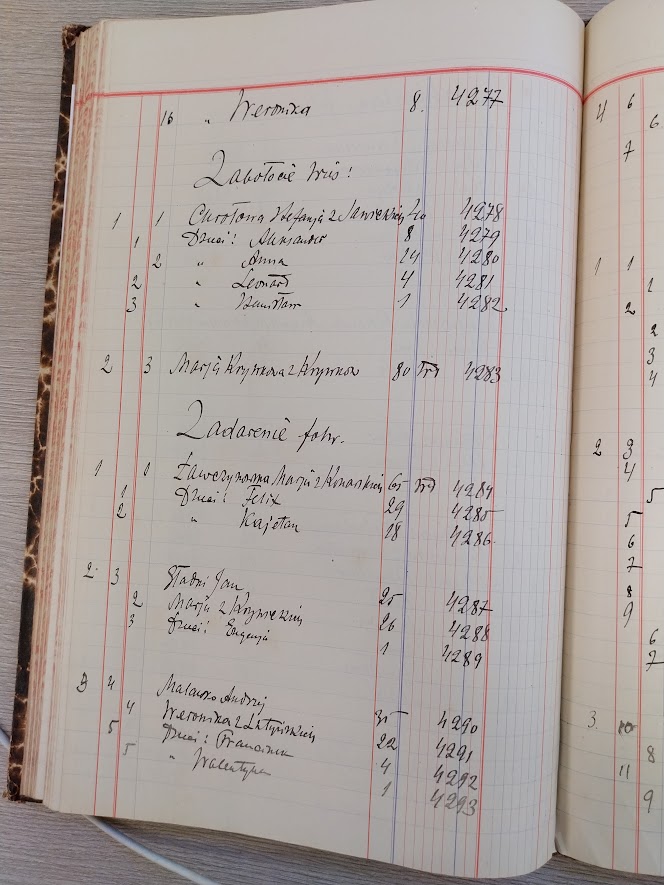 16 „ Weronika 8. 4277
Zabłocie wieś!
1 1 Stefanja z 40 4278
1 Dzieci: Aleksander 8 4279
2 „ Anna 24 4280
2 „ Leonard 4 4281
3 „ Stanisław 1 4282
2 3 Marja Krywkowa z Krywków 80 4283
Zadarenie folw.
1 1 Marja z Konarskich 65 4284
1 Dzieci: Felix 29 4285
2 „ Kajetan 18 4286
2 3 Jan 25 4287
2 Marja z 26 4288
3 Dzieci: Eugenja 1 4289
3 4 Andrzej 35 4290
4 Weronika z 22 4291
5 Dzieci: Franciszek 4 4292
5 „ Walentyna 1 4293
4 6
6
7
1 1
1
2
2
3
4
2 3
4
5
5
6
7
8
9
6
7
3. 10
8
11
9